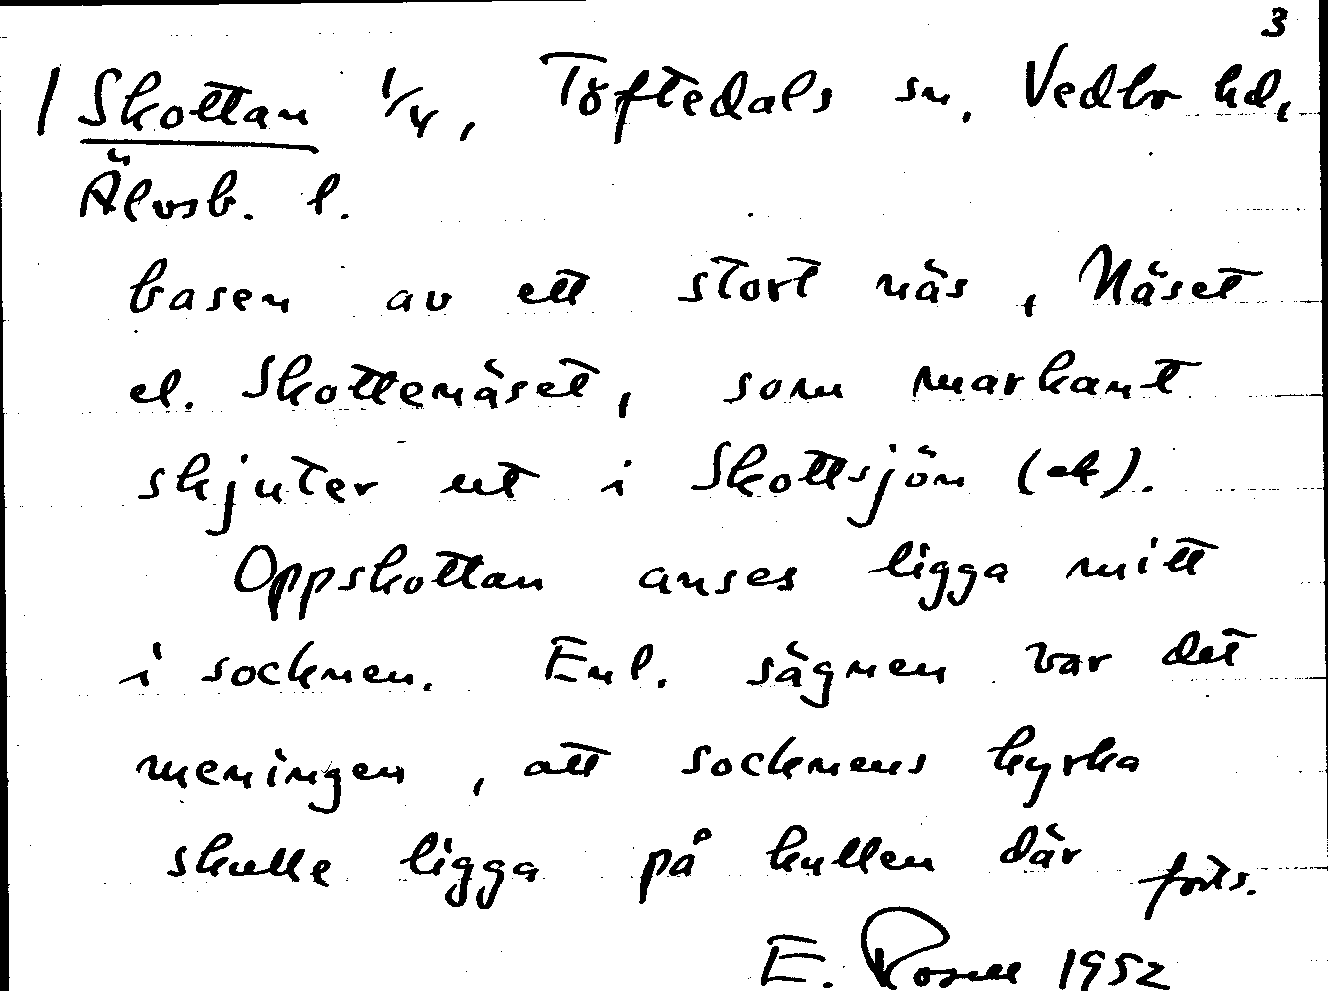 3
/ Skottan 1/4, Töftedals sn. Vedbo hd,
Älvsb. l.
basen av ett stort näs, Näset
el. Skottenäset, som markant
skjuter ut i Skottsjön (ek).
Oppskottan anses ligga mitt
i socknen. Enl. sägnen var det
meningen, att socknens kyrka
skulle ligga på kullen där forts.
E. Rosell 1952